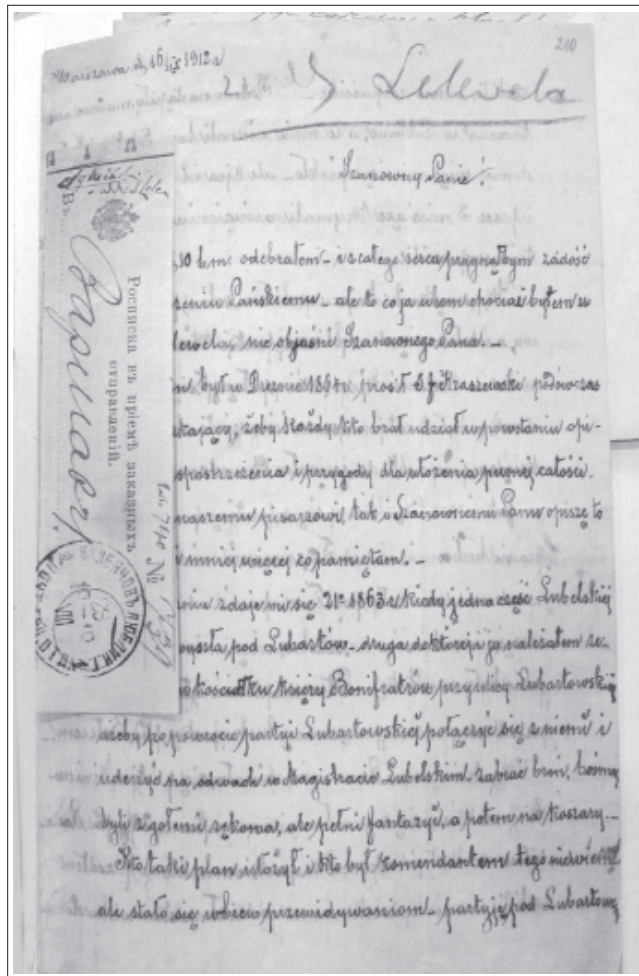 Warszawa d. 16/IX 1912 r
210
2
Lelewela
Szanowny Panie!
10 b.m. odebrałem – i z całego serca pragnąłbym zadość
szeniu Pańskiemu – ale to co ja wiem chociaż byłem u
lewela, nie objaśni Szanownego Pana. –
m był w Dreznie 1864 r prosił ś. J Kraszewski podówczas
żeby każdy kto brał udział w powstaniu opi-
spostrzeżenia i przygody dla ułożenia pewnej całości.
naszemu pisarzowi, tak i Szanownemu Panu opiszę to
mniej więcej co pamiętam. –
nia zdaje mi się 21º 1863 r kiedy jedna część Lubelskiej
wyszła pod Lubartów – druga do której i ja należałem ze-
w kościółku księży Bonifratrów przy ulicy Lubartowskiej
ażeby po powrocie partyi Lubartowskiej połączyć się z niemi i
uderzyć na odwach w Magistracie Lubelskim, zabrać broń, bośmy
byli z gołemi rękoma, ale pełni fantazyi, a potem na koszary. –
Kto taki plan ułożył i kto był komendantem tego nie wiem
ale stało się wbrew przewidywaniom – partyję pod Lubartowem
Росписка въ пріемѣ заказныхъ
отправленій.
Въ
Варшаву
№